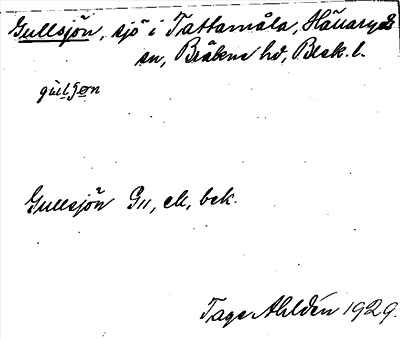 Gullsjön, sjö i Tattamåla, Hällaryds
sn, Bräkne hd, Blek. l.
gúlʃøn
Gullsjön G11, ek, bek.
Tage Ahldén 1929.